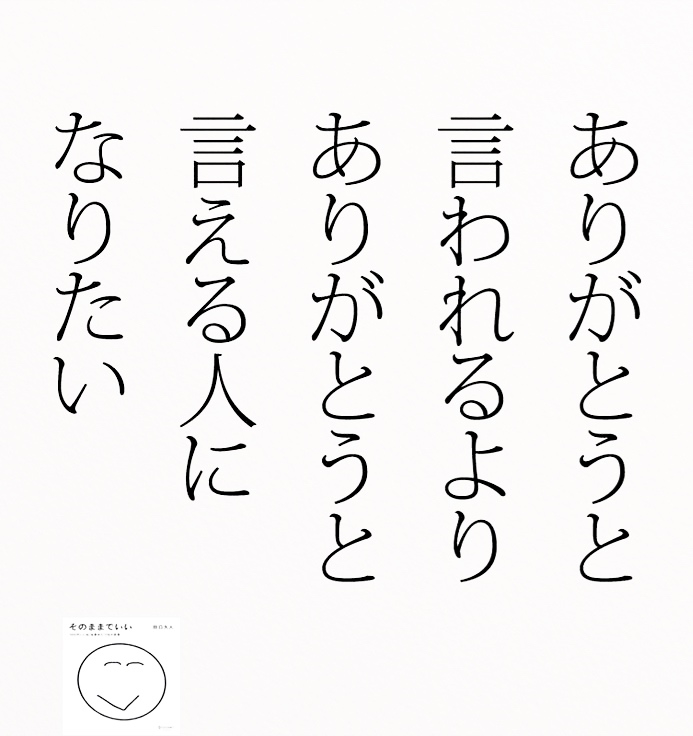 ありがとうと
言われるより
ありがとうと
言える人に
なりたい
そのままでいい